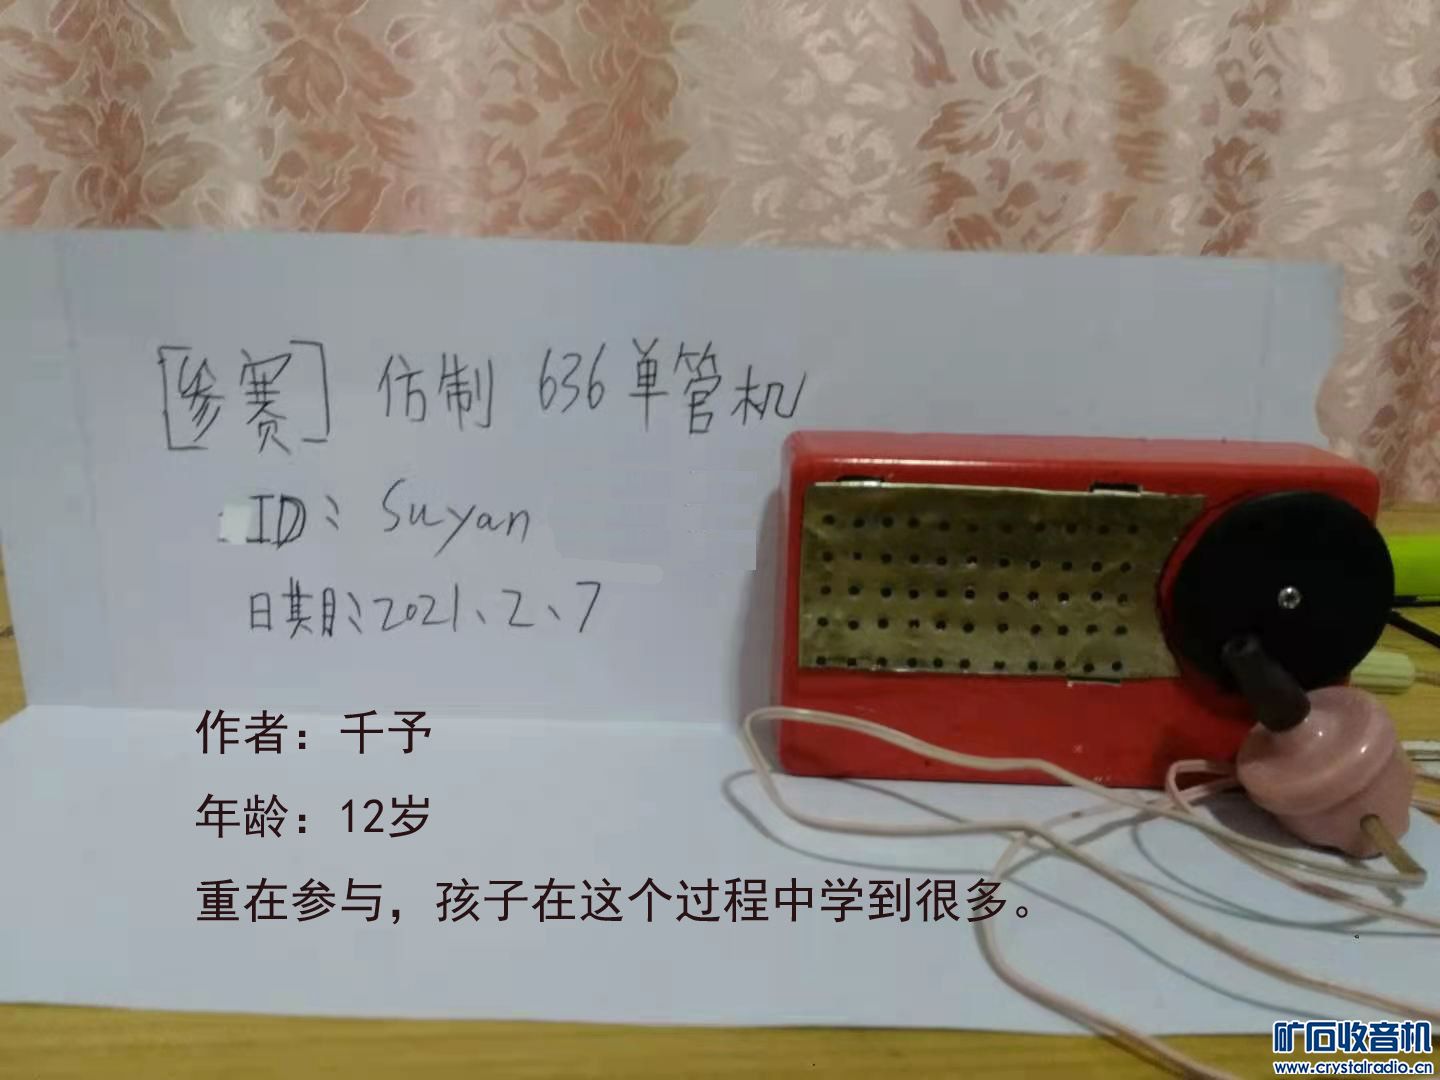 [参赛] 仿制 636单管机
ID: Suyan
日期:2021、2、7
作者：千予
年龄：12岁
重在参与，孩子在这个过程中学到很多。
矿石收音机
www.crystalradio.cn